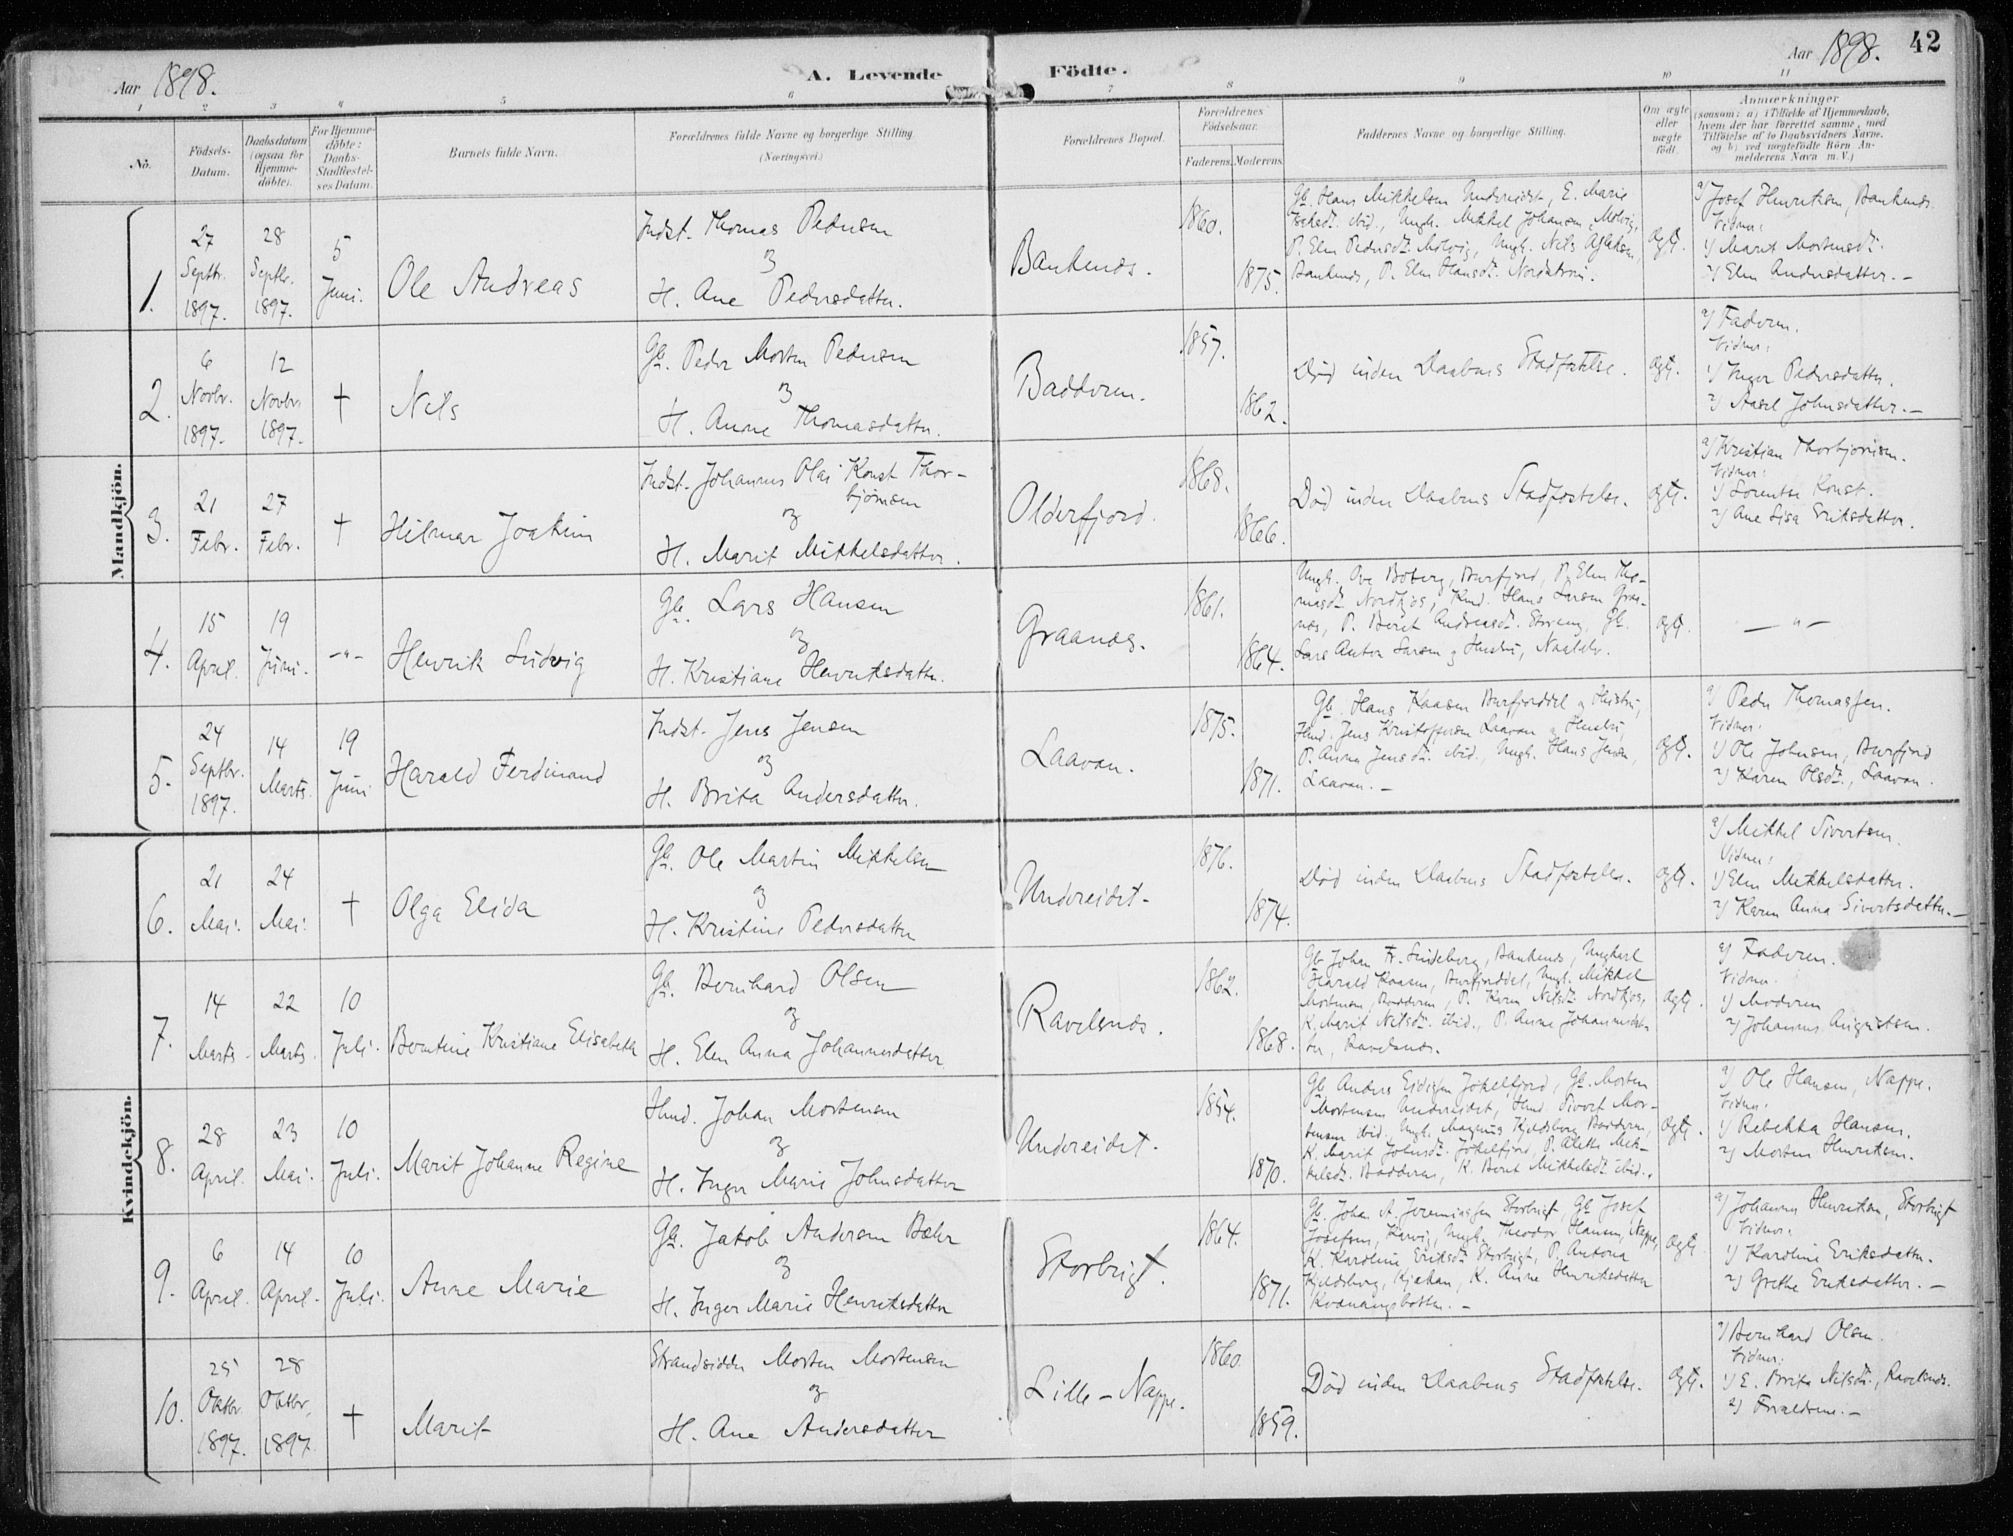 Aar 1898.
A. Levende Födte.
Aar 1898.
42
1 2 3 4 5 6 7 8 9 10 11
No.
Födsels-Datum.
Daabsdatum (ogsaa for Hjemme-döbte).
For Hjemme-döbte: Daabs-Stadfæstel-ses Datum.
Barnets fulde Navn.
Forældrenes fulde Navne og borgerlige Stilling (Næringsvei.)
Forældrenes Bopæl.
Forældrenes Födselsaar.
Faderens. Moderens.
Faddernes Navne og borgerlige Stilling.
Om ægte eller uægte födt.
Anmærkninger
(saasom: a) i Tilfælde af Hjemmedaab,
hvem der har forrettet samme, med
Tilföielse af to Daabsvidners Navne.
og b) ved uægtefödte Börn An-
melderens Navn m. V.)
Mandkjön.
1.
27 Septbr. 1897.
28 Septbr. 1897.
5 Juni.
Ole Andreas
Indst. Thomas Pedersen
og
H. Ane Pedersdatter.
Bankenes.
1860.
1875.
Gb. Hans Mikkelsen Undereidet, E. Marie
ibid., Ungk. Mikkel Johansen, Molvig,
P. Elen Pedersdt. Molvig, Ungk. Nils
Bankenes, P. Elen Hansdt.
ægt.
a) Josef Henriksen, Bankenes.
Vidner:
1) Marit Mortensdt.
2) Elen Andersdatter. –
2.
6 Novbr. 1897.
12 Novbr. 1897.
†
Nils
Gb. Peder Morten Pedersen
og
H. Anne Thomasdatter.
Badderen.
1857.
1862.
Död inden Daabens Stadfæstelse.
ægt.
a) Faderen.
Vidner:
1) Inger Pedersdatter.
2) Aasel Johnsdatter. –
3.
21 Febr.
27 Febr.
†
Hilmar Joakim
Indst. Johannes Olai Konst Thor-
björnsen
og
H. Marit Mikkelsdatter.
Olderfjord.
1868.
1866.
Död inden Daabens Stadfæstelse.
ægt.
a) Kristian Thorbjörnsen.
Vidner:
1) Lorentse Konst.
2) Ane Lisa Eriksdatter.
4.
15 April.
19 Juni.
–"–
Henrik Ludvig
Gb. Lars Hansen
og
H. Kristiane Henriksdatter.
Graanes.
1861.
1864.
Ungk. Ove Boberg, Burfjord, P. Elen Tho-
masdt. Nordkjos, Hmd. Hans Larsen Graa-
nes, P. Berit Andreasdt. Storeng, Gb.
Lars Anton Larsen og Hustru,
ægt.
– " –
5.
24 Septbr. 1897.
14 Marts.
19 Juni
Harald Ferdinand
Indst. Jens Jensen
og
H. Brita Andersdatter.
Laavan.
1875.
1871.
Gb. Hans Kaasen Burfjorddel og Hustru,
Hmd. Jens Kristoffersen Laavan og Hustru,
P. Anna Jensdt. ibid., Ungk. Hans Jensen,
Laavan. –
ægt.
a) Peder Thomassen.
Vidner:
1) Ole Johnsen, Burfjord
2) Karen Olsdt., Laavan.
Kvindekjön.
6.
21 Mai.
24 Mai.
†
Olga Elida
Gb. Ole Martin Mikkelsen
og
H. Kristine Pedersdatter
Undereidet.
1876.
1874.
Död inden Daabens Stadfæstelse.
ægt.
a) Mikkel Sivertsen.
Vidner:
1) Elen Mikkelsdatter.
2) Karen Anna Sivertsdatter. –
7.
14 Marts.
22 Marts.
10 Juli.
Berntine Kristiane Elisabeth
Gb. Bernhard Olsen
og
H. Elen Anna Johannesdatter
Ravelsnes.
1862.
1868.
Gb. Johan Fr. Lindeberg, Bankenes, Ungkarl
Harald Kaasen, Burfjorddel, Ungk. Mikkel
Mortensen, Badderen, P. Karen Nilsdt. Nordkjos,
K. Marit Nilsdt. ibid., P. Anne Johannesdat-
ter, Ravelsnes.
ægt.
a) Faderen.
Vidner.
1) Moderen
2) Johannes Augustsen.
8.
28 April.
23 Mai.
10 Juli.
Marit Johanne Regine
Hmd. Johan Mortensen
og
H. Inger Marie Johnsdatter
Undereidet.
1854.
1870.
Gb. Anders Eidissen Jökelfjord, Gb. Morten
Mortensen Undereidet, Hmd. Sivert Mor-
tensen ibid. Ungk. Magnus Kjeldsberg Badderen,
K. Marit Johnsdt. Jökelfjord, P. Alethe Mik-
kelsdt. Badderen, K. Berit Mikkelsdt. ibid.
ægt.
a) Ole Hansen, Nappe.
Vidner:
1) Rebekka Hansen.
2) Morten Henriksen.
9.
6 April.
14 April.
10 Juli.
Anne Marie
Gb. Jakob Andersen Bæhr
og
H. Inger Marie Henriksdatter
Storbugt.
1864.
1871.
Gb. Johan A. Jeremiassen Storbugt, Gb. Josef
Josefsen, Ungk. Theodor Hansen, Nappe,
K. Karoline Eriksdt. Storbugt, P. Antona
Kjeldsberg, Kjækan, K. Anne Henriksdatter
Kvænangsbotten. –
ægt.
a) Johannes Henriksen, Storbugt
Vidner:
1) Karoline Eriksdatter.
2) Grethe Eriksdatter. –
10.
25 Oktbr. 1897.
28 Oktbr. 1897.
†
Marit
Strandsidder Morten Mortensen
og
H. Ane Andersdatter
Lille-Nappe.
1860
1859.
Död inden Daabens Stadfæstelse.
ægt.
a) Bernhard Olsen.
Vidner:
1) E. Brita Nilsdt., Ravelsnes.
2) Forældrene. –